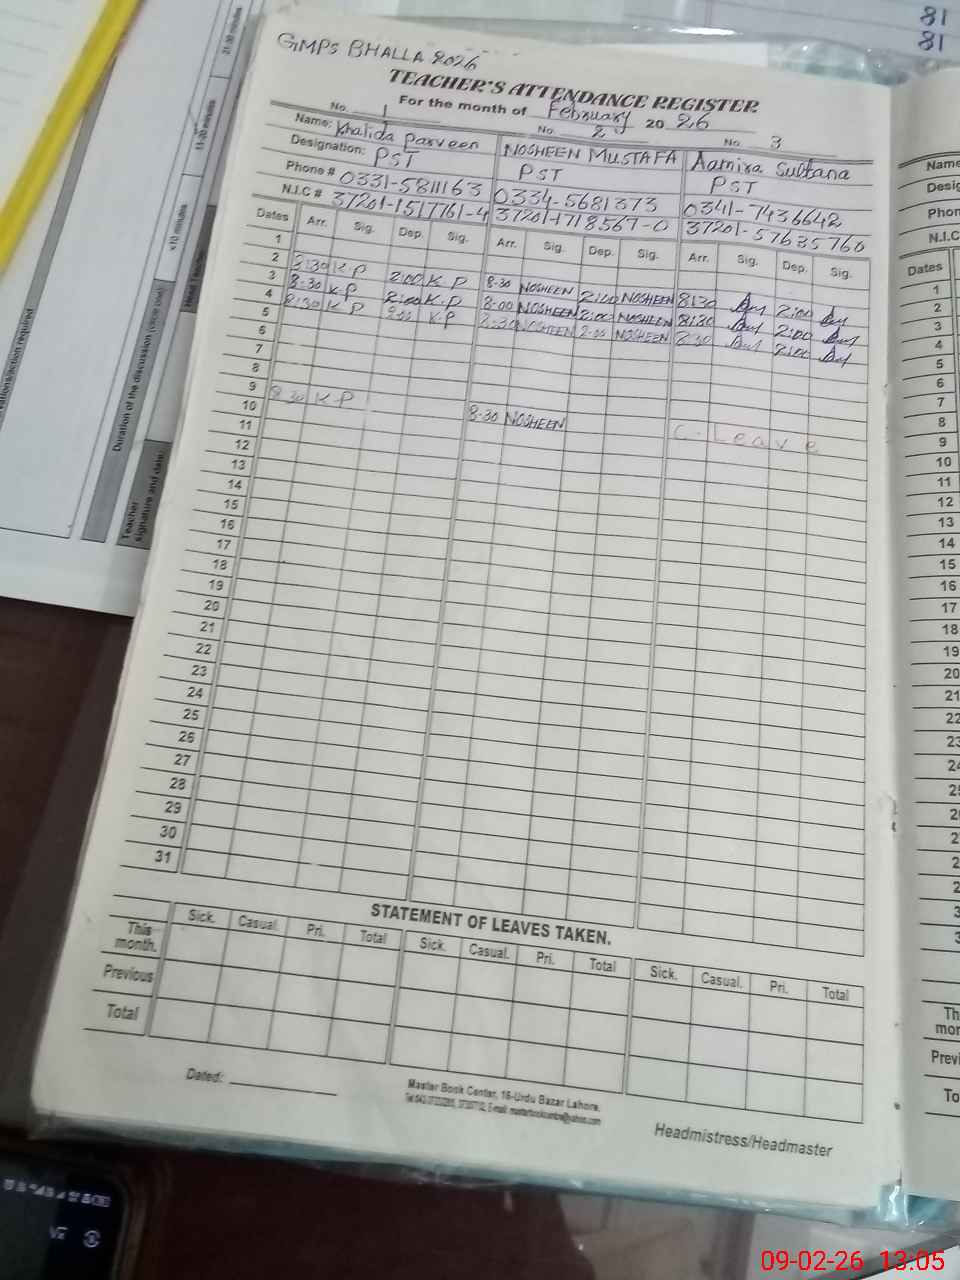 81
81
GMPS BHALLA 2026
TEACHER'S ATTENDANCE REGISTER
For the month of February 2026
No. 1 No. 2 No. 3
Name: Khalida Parveen NOSHEEN MUSTAFA Aamira Sultana
Designation: PST PST PST
Phone # 0331-5811163 0334-5681373 0341-7436642
N.I.C # 37201-1517761-4 37201-1718567-0 37201-57635760
Dates Arr. Sig. Dep. Sig. Arr. Sig. Dep. Sig. Arr. Sig. Dep. Sig.
1
2 8:30 K.P 2:00 K.P 8-30 NOSHEEN 2:00 NOSHEEN 8:30 2:00
3 8:30 K.P 2:00 K.P 8:00 NOSHEEN 2:00 NOSHEEN 8:30 2:00
4 8:30 K.P 2:00 K.P 8:30 NOSHEEN 2:00 NOSHEEN 8:30 2:00
5
6
7
8
9 8:30 K.P 8-30 NOSHEEN C-Leave
10
11
12
13
14
15
16
17
18
19
20
21
22
23
24
25
26
27
28
29
30
31
STATEMENT OF LEAVES TAKEN.
Sick. Casual. Pri. Total Sick. Casual. Pri. Total Sick. Casual. Pri. Total
This month.
Previous
Total
Dated:
Master Book Center, 16-Urdu Bazar Lahore.
Headmistress/Headmaster
Name
Phon
N.I.C
Dates
1
2
3
4
5
6
7
8
9
10
11
12
13
14
15
16
17
18
19
20
21
22
21-30 minutes
11-20 minutes
<10 minutes
Duration of the discussion (circle one):
Teacher signature and date:
09-02-26 13:05